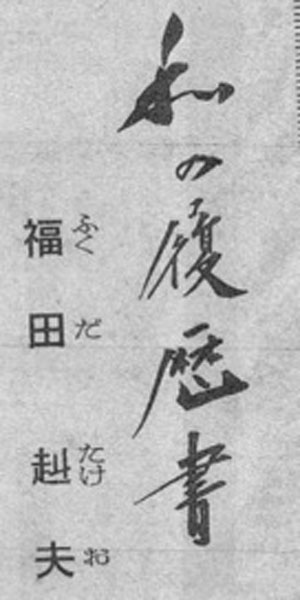 私の履歴書
ふくだ たけお
福田 赳夫